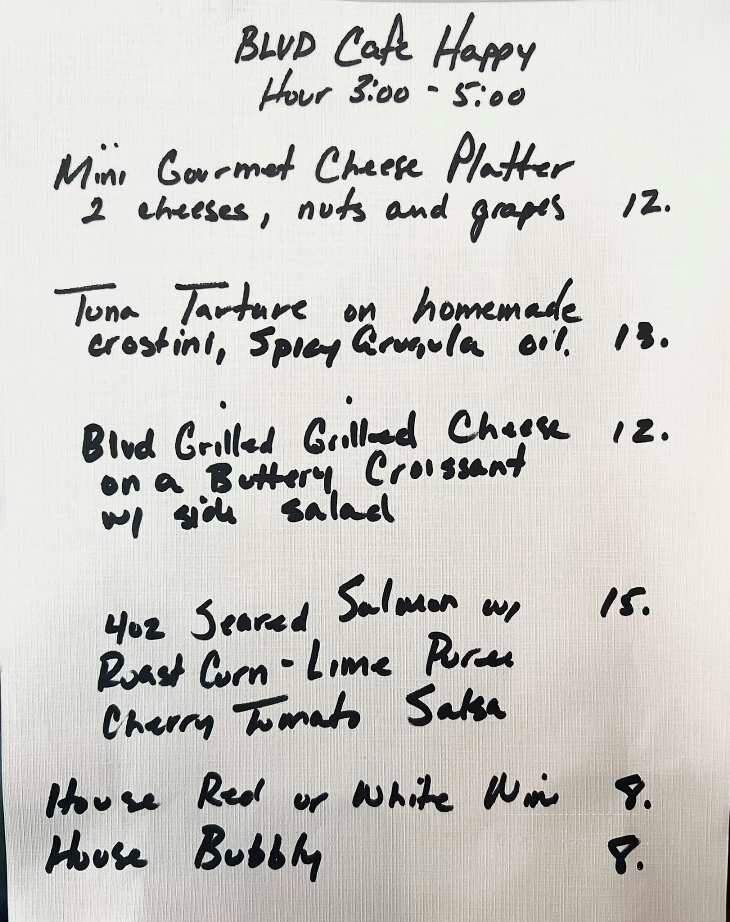 BLVD Cafe Happy
Hour 3:00 - 5:00
Mini Gourmet Cheese Platter
2 cheeses, nuts and grapes 12.
Tuna Tarture on homemade
crostini, Spicy Arugula oil. 13.
Blvd Grilled Grilled Cheese 12.
on a Buttery Croissant
w/ side salad
4oz Seared Salmon w/ 15.
Roast Corn - Lime Puree
Cherry Tomato Salsa
House Red or White Wine 8.
House Bubbly 8.